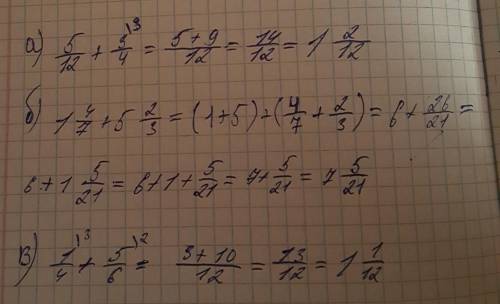 а) 5/12 + 3/4^3 = (5+9)/12 = 14/12 = 1 2/12
б) 1 4/7 + 5 2/3 = (1+5)+(4/7 + 2/3) = 6 + 26/21 =
6 + 1 5/21 = 6+1+ 5/21 = 7+ 5/21 = 7 5/21
в) 1/4^3 + 5/6^2 = (3+10)/12 = 13/12 = 1 1/12